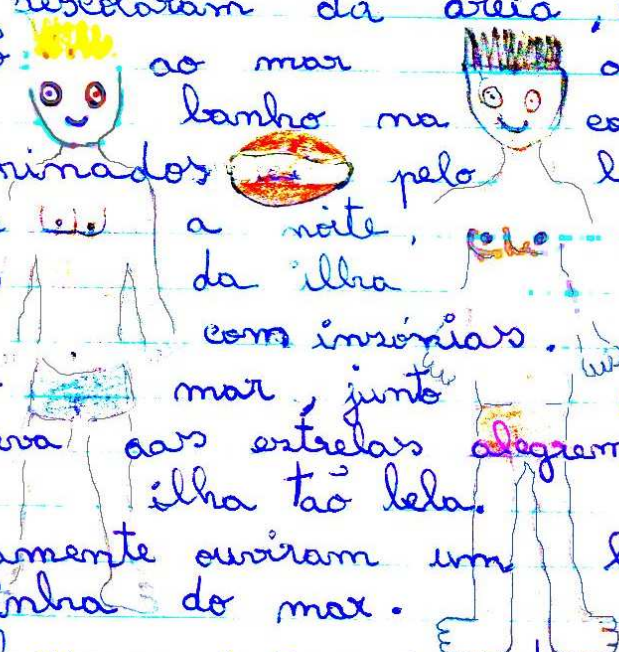 descolaram da areia,
ao mar
banho na
minados pelo
a noite,
da ilha
com insónias.
mar, junto
eva aas estrelas alegrem
ilha tão bela.
amente ouviram um
inha do mar.